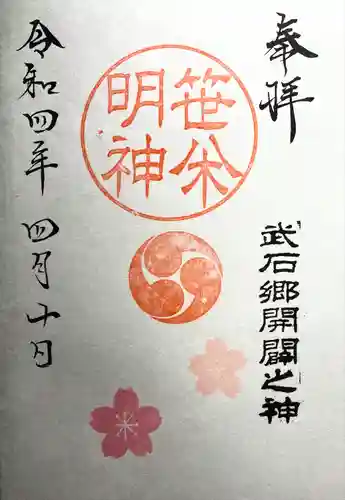 奉拝
武石郷開闢之神
笹米
明神
令和四年 四月十日